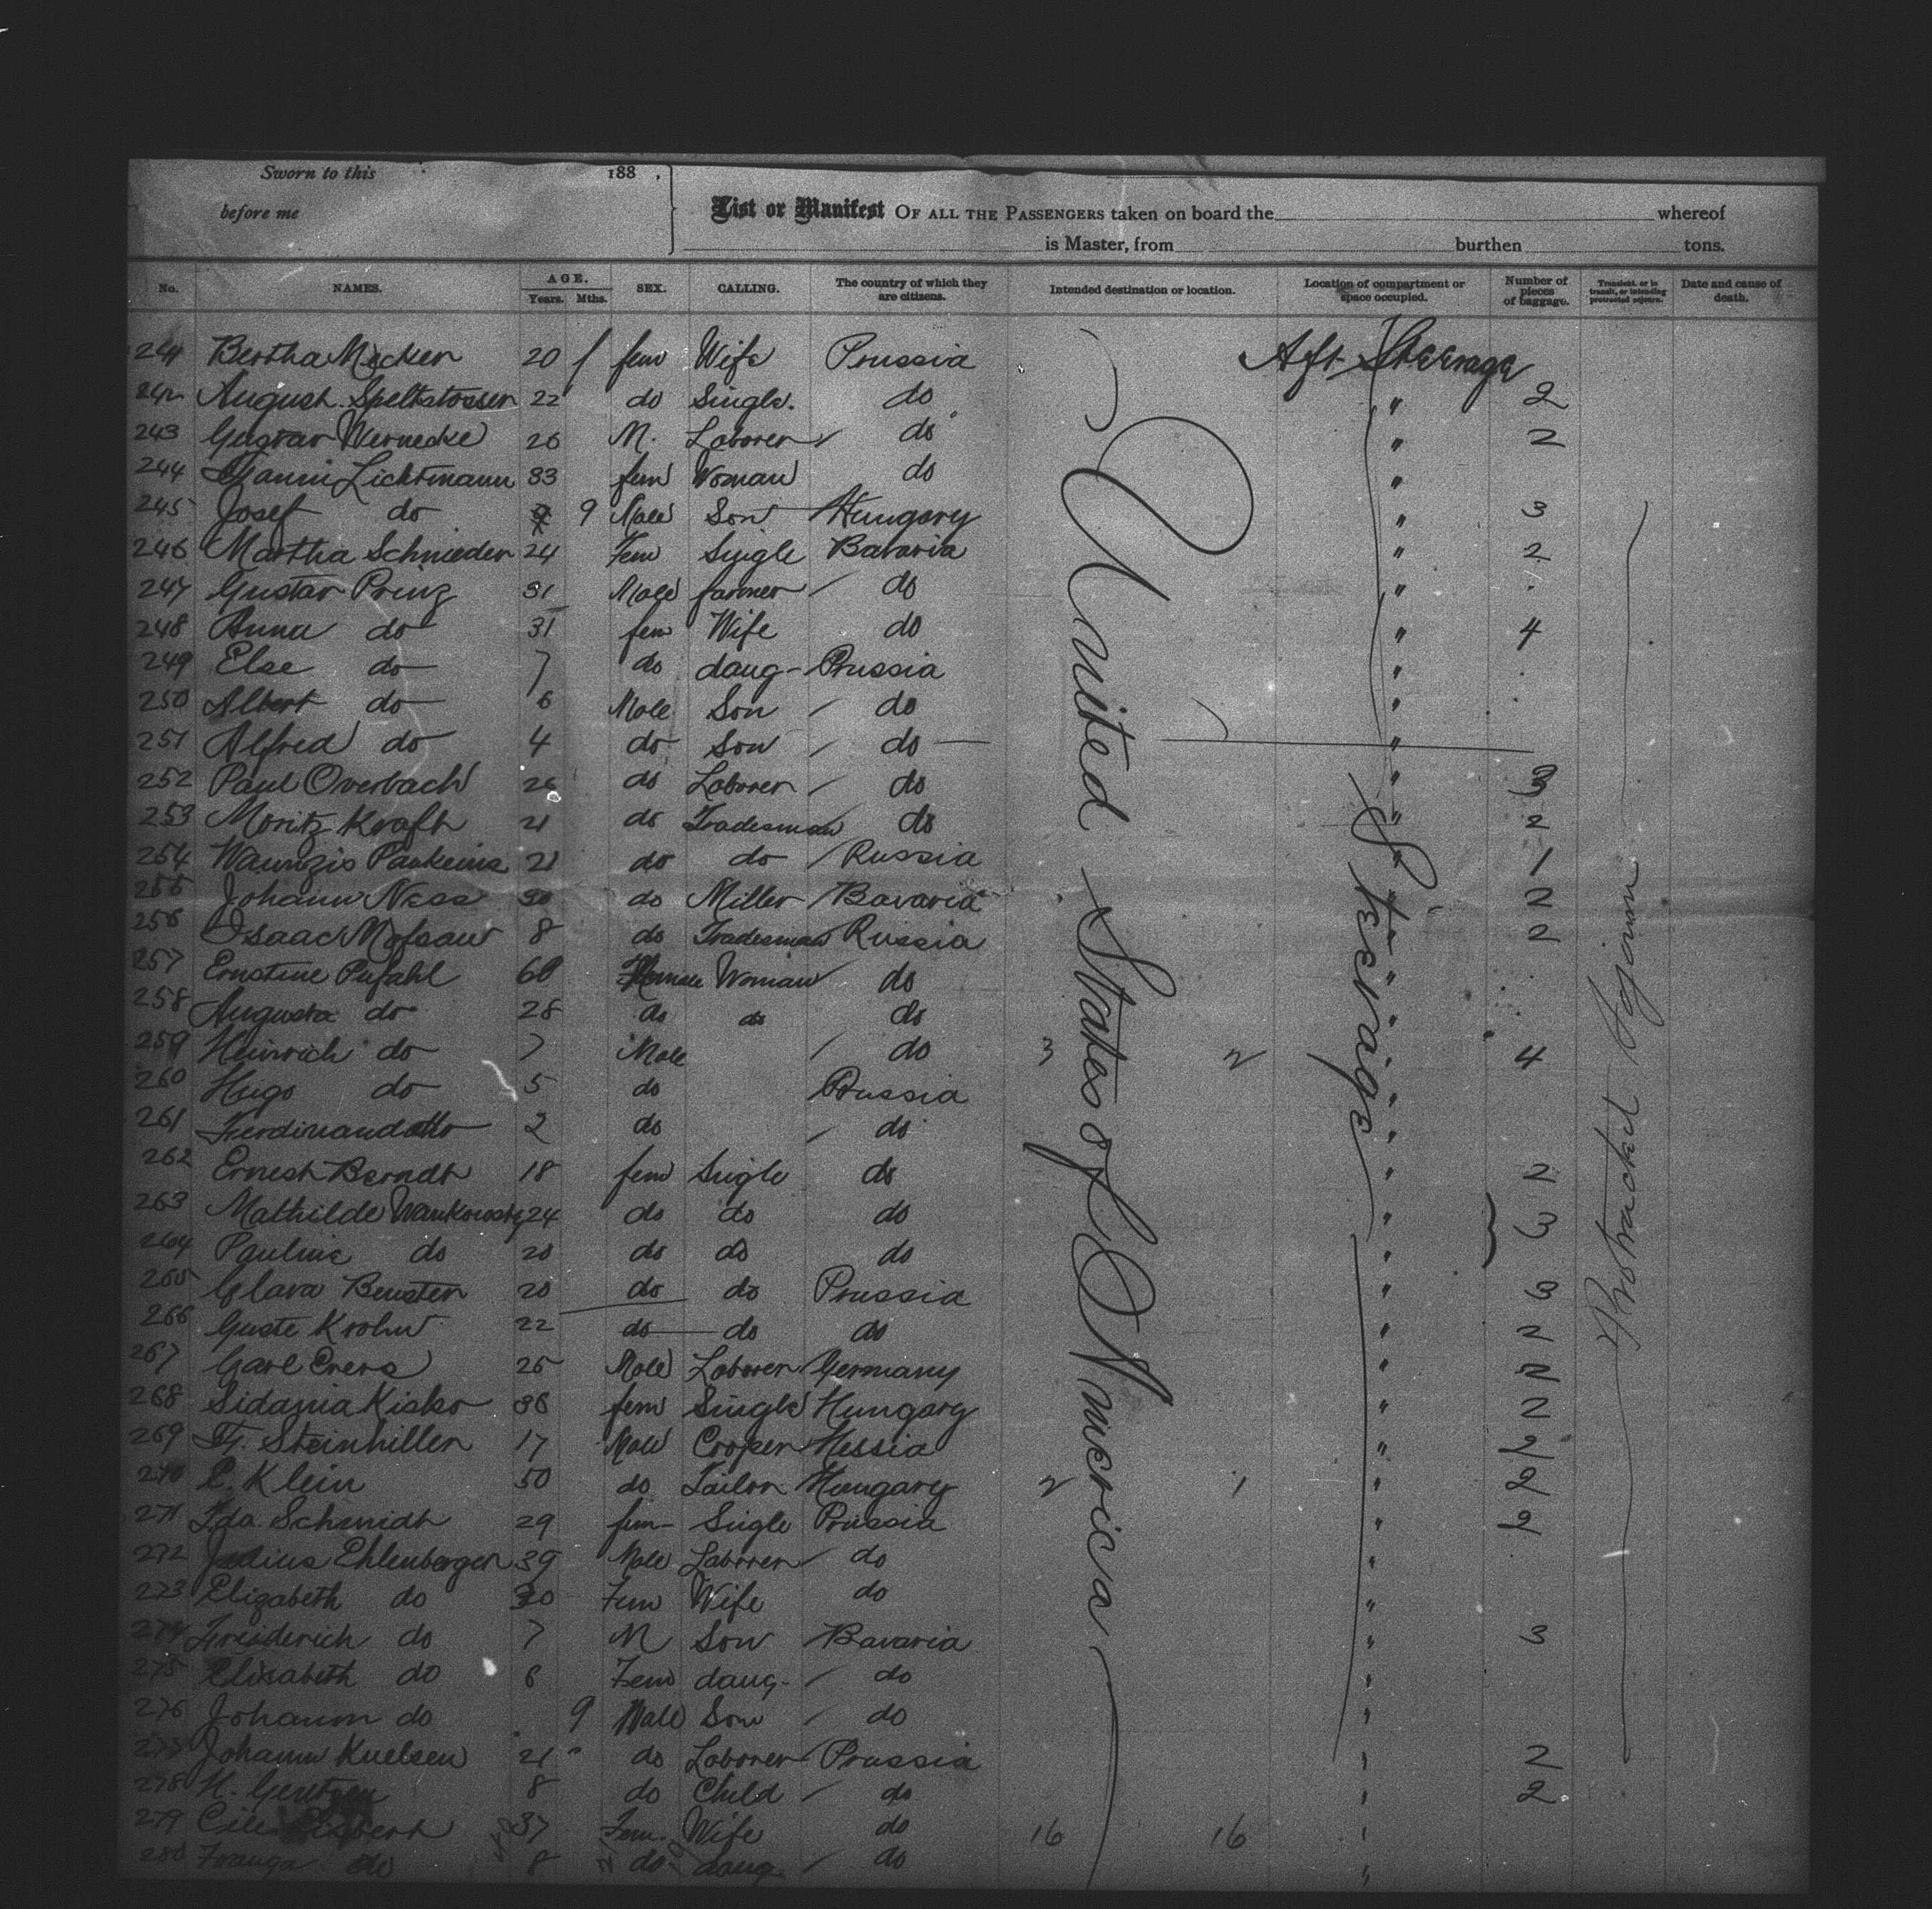 Sworn to this 188 ,
before me
List or Manifest OF ALL THE PASSENGERS taken on board the whereof
is Master, from burthen tons.
No. NAMES. AGE. Years. Mths. SEX. CALLING. The country of which they are citizens. Intended destination or location. Location of compartment or space occupied. Number of pieces of baggage. Transient, or in transit, or intending protracted sojourn. Date and cause of death.
241 Bertha Mecker 20 fem Wife Prussia Aft Steerage
242 August Speltstosser 22 do Single. do " 2
243 Gustav Wernecke 26 M. Laborer do " 2
244 Hanni Lichtmann 33 fem Woman do "
245 Josef do 9 Male Son Hungary " 3
246 Martha Schnieder 24 Fem Single Bavaria " 2
247 Gustav Prinz 31 Male farmer do "
248 Anna do 31 fem Wife do " 4
249 Else do 7 do daug- Prussia "
250 Albert do 6 Male Son do "
251 Alfred do 4 do Son do "
252 Paul Overbach 26 do Laborer do " 3
253 Moritz Kraft 21 do Tradesman do " 2
254 Paukeins 21 do do Russia " 1
255 Johann Ness 30 do Miller Bavaria " 2
256 Isaac 8 do Tradesman Russia " 2
257 Ernstine Pufahl 60 Female Woman do "
258 Augusta do 28 do do do "
259 Heinrich do 7 Male do 3 2 " 4
260 Hugo do 5 do Prussia "
261 Ferdinand do 2 do do "
262 Ernest Berndt 18 fem Single do " 2
263 Mathilde Wankowsky 24 do do do " 3
264 Pauline do 20 do do do "
265 Clara Benster 20 do do Prussia " 3
266 Guste Krohn 22 do do do " 2
267 Carl Evers 25 Male Laborer Germany " 2
268 Sidania Kisko 36 fem Single Hungary " 2
269 Fr. Steinhiller 17 Male Cooper Hessia " 2
270 L. Klein 50 do Tailor Hungary 2 1 " 2
271 Ida Schmidt 29 fem- Single Prussia " 2
272 Julius Ehlenberger 39 Male Laborer do "
273 Elizabeth do 30 Fem Wife do "
274 Freiderich do 7 M Son Bavaria " 3
275 Elisabeth do 6 Fem daug- do "
276 Johann do 9 Male Son do "
277 Johann Kuelsen 21 do Laborer Prussia " 2
278 H. Gentzen 8 do Child do " 2
279 37 Fem. Wife do 16 16 "
280 do 8 do daug do "
United States of America
Steerage
Protracted Sojourn